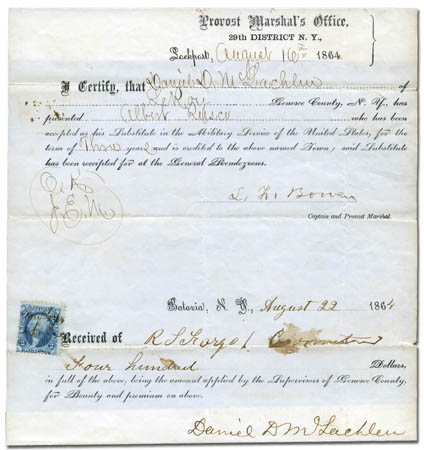 Provost Marshal's Office,
29th DISTRICT N. Y.,
Lockport, August 16th 1864.
I Certify, that Daniel D. McLachlen of
LeRoy Genesee County, N. Y., has
presented Albert who has been
accepted as his Substitute in the Military Service of the United States, for the
term of Three years & is credited to the above named Town; said Substitute
has been receipted for at the General Rendezvous.
O.K.
J.E.M
Bowen
Captain and Provost Marshal.
Batavia, N. Y., August 22 1864
Received of R
Four hundred Dollars,
in full of the above, being the amount applied by the Supervisors of Genesee County,
for Bounty and premium on above.
Daniel D McLachlen